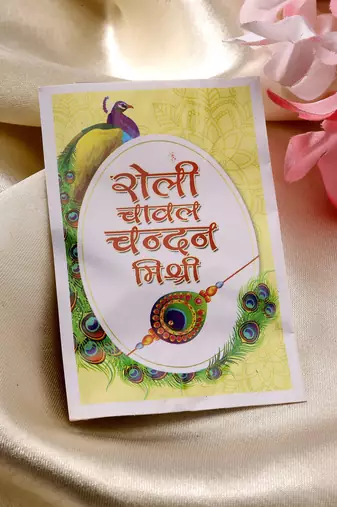 रोली
चावल
चन्दन
मिश्री